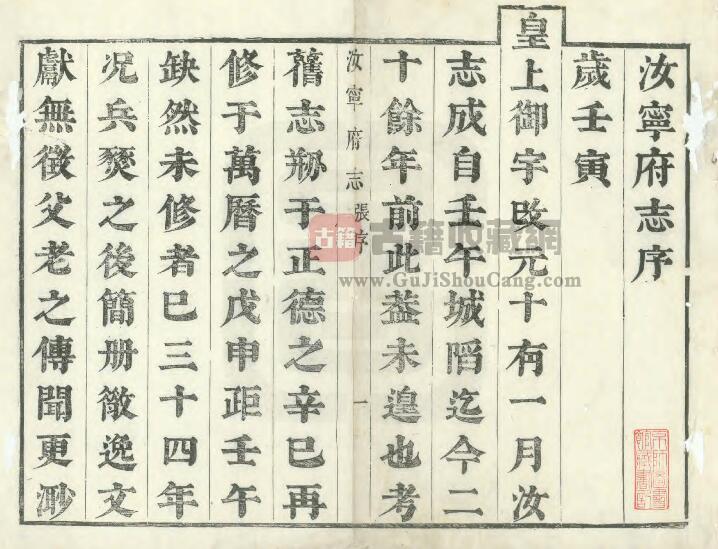 汝寧府志序
歲壬寅
皇上御宇改元十有一月汝
志成自壬午城陷迄今二
十餘年前此葢未遑也考
汝寧府志 張序 一
舊志剏于正德之辛巳再
修于萬曆之戊申距壬午
缺然未修者已三十四年
况兵燹之後簡册散逸文
獻無徵父老之傳聞更渺
古籍 古籍收藏網
www.GuJiShouCang.com